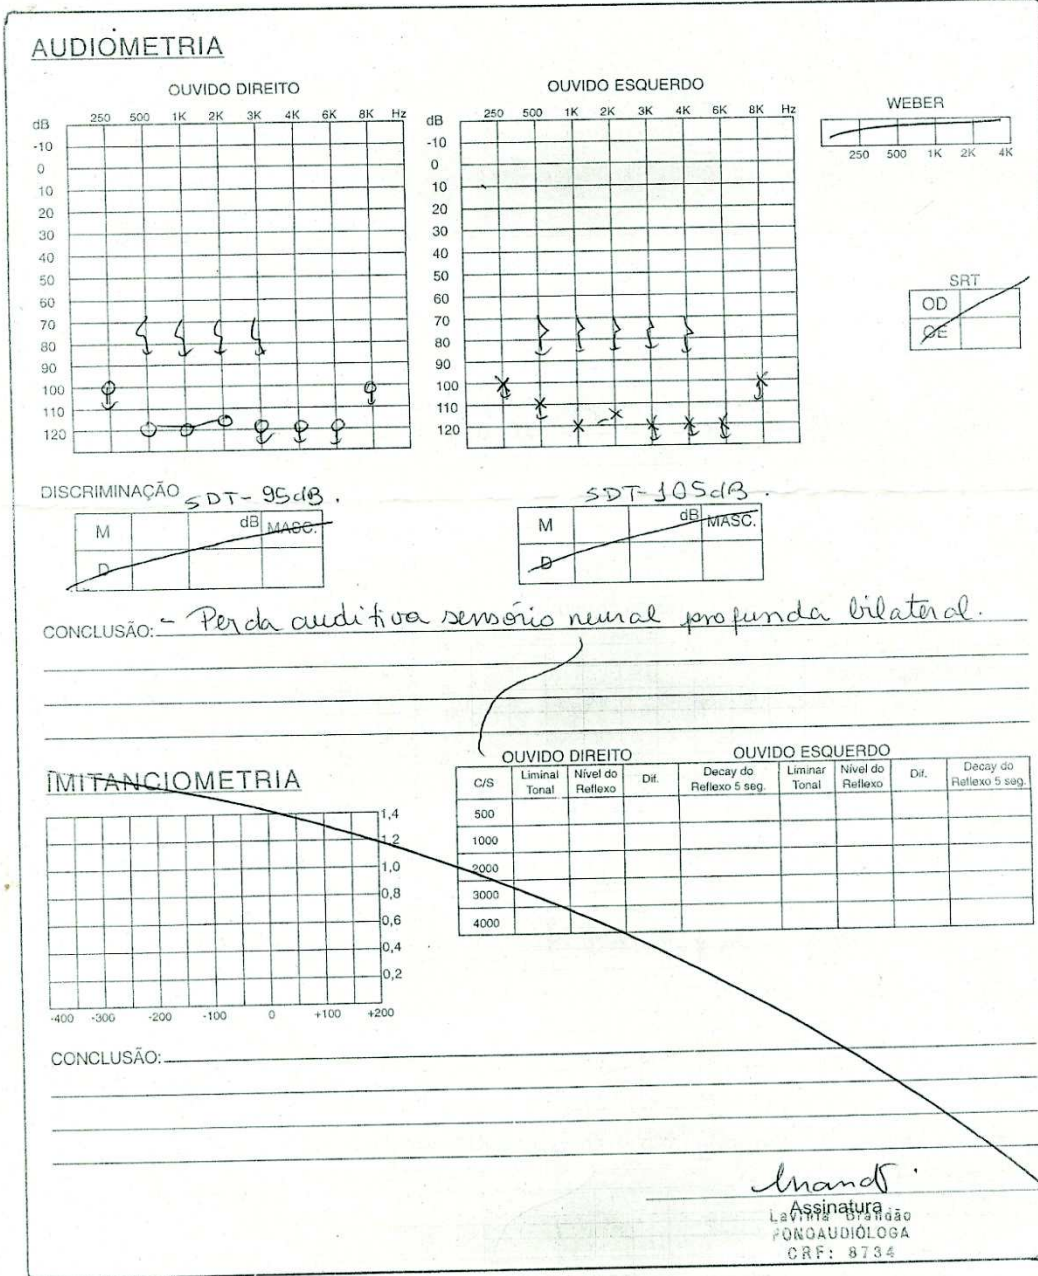 AUDIOMETRIA
OUVIDO DIREITO
250 500 1K 2K 3K 4K 6K 8K Hz
dB
-10
0
10
20
30
40
50
60
70
80
90
100
110
120
OUVIDO ESQUERDO
250 500 1K 2K 3K 4K 6K 8K Hz
dB
-10
0
10
20
30
40
50
60
70
80
90
100
110
120
WEBER
250 500 1K 2K 4K
SRT
OD
OE
DISCRIMINAÇÃO SDT-95dB.
M dB MASC.
D
SDT-105dB.
M dB MASC.
D
CONCLUSÃO: - Perda auditiva sensório neural profunda bilateral.
IMITANCIOMETRIA
1,4
1,2
1,0
0,8
0,6
0,4
0,2
-400 -300 -200 -100 0 +100 +200
OUVIDO DIREITO OUVIDO ESQUERDO
C/S Liminal Tonal Nível do Reflexo Dif. Decay do Reflexo 5 seg. Liminar Tonal Nível do Reflexo Dif. Decay do Reflexo 5 seg.
500
1000
2000
3000
4000
CONCLUSÃO:
Assinatura
Lavinia Brandão
FONOAUDIÓLOGA
CRF: 8734